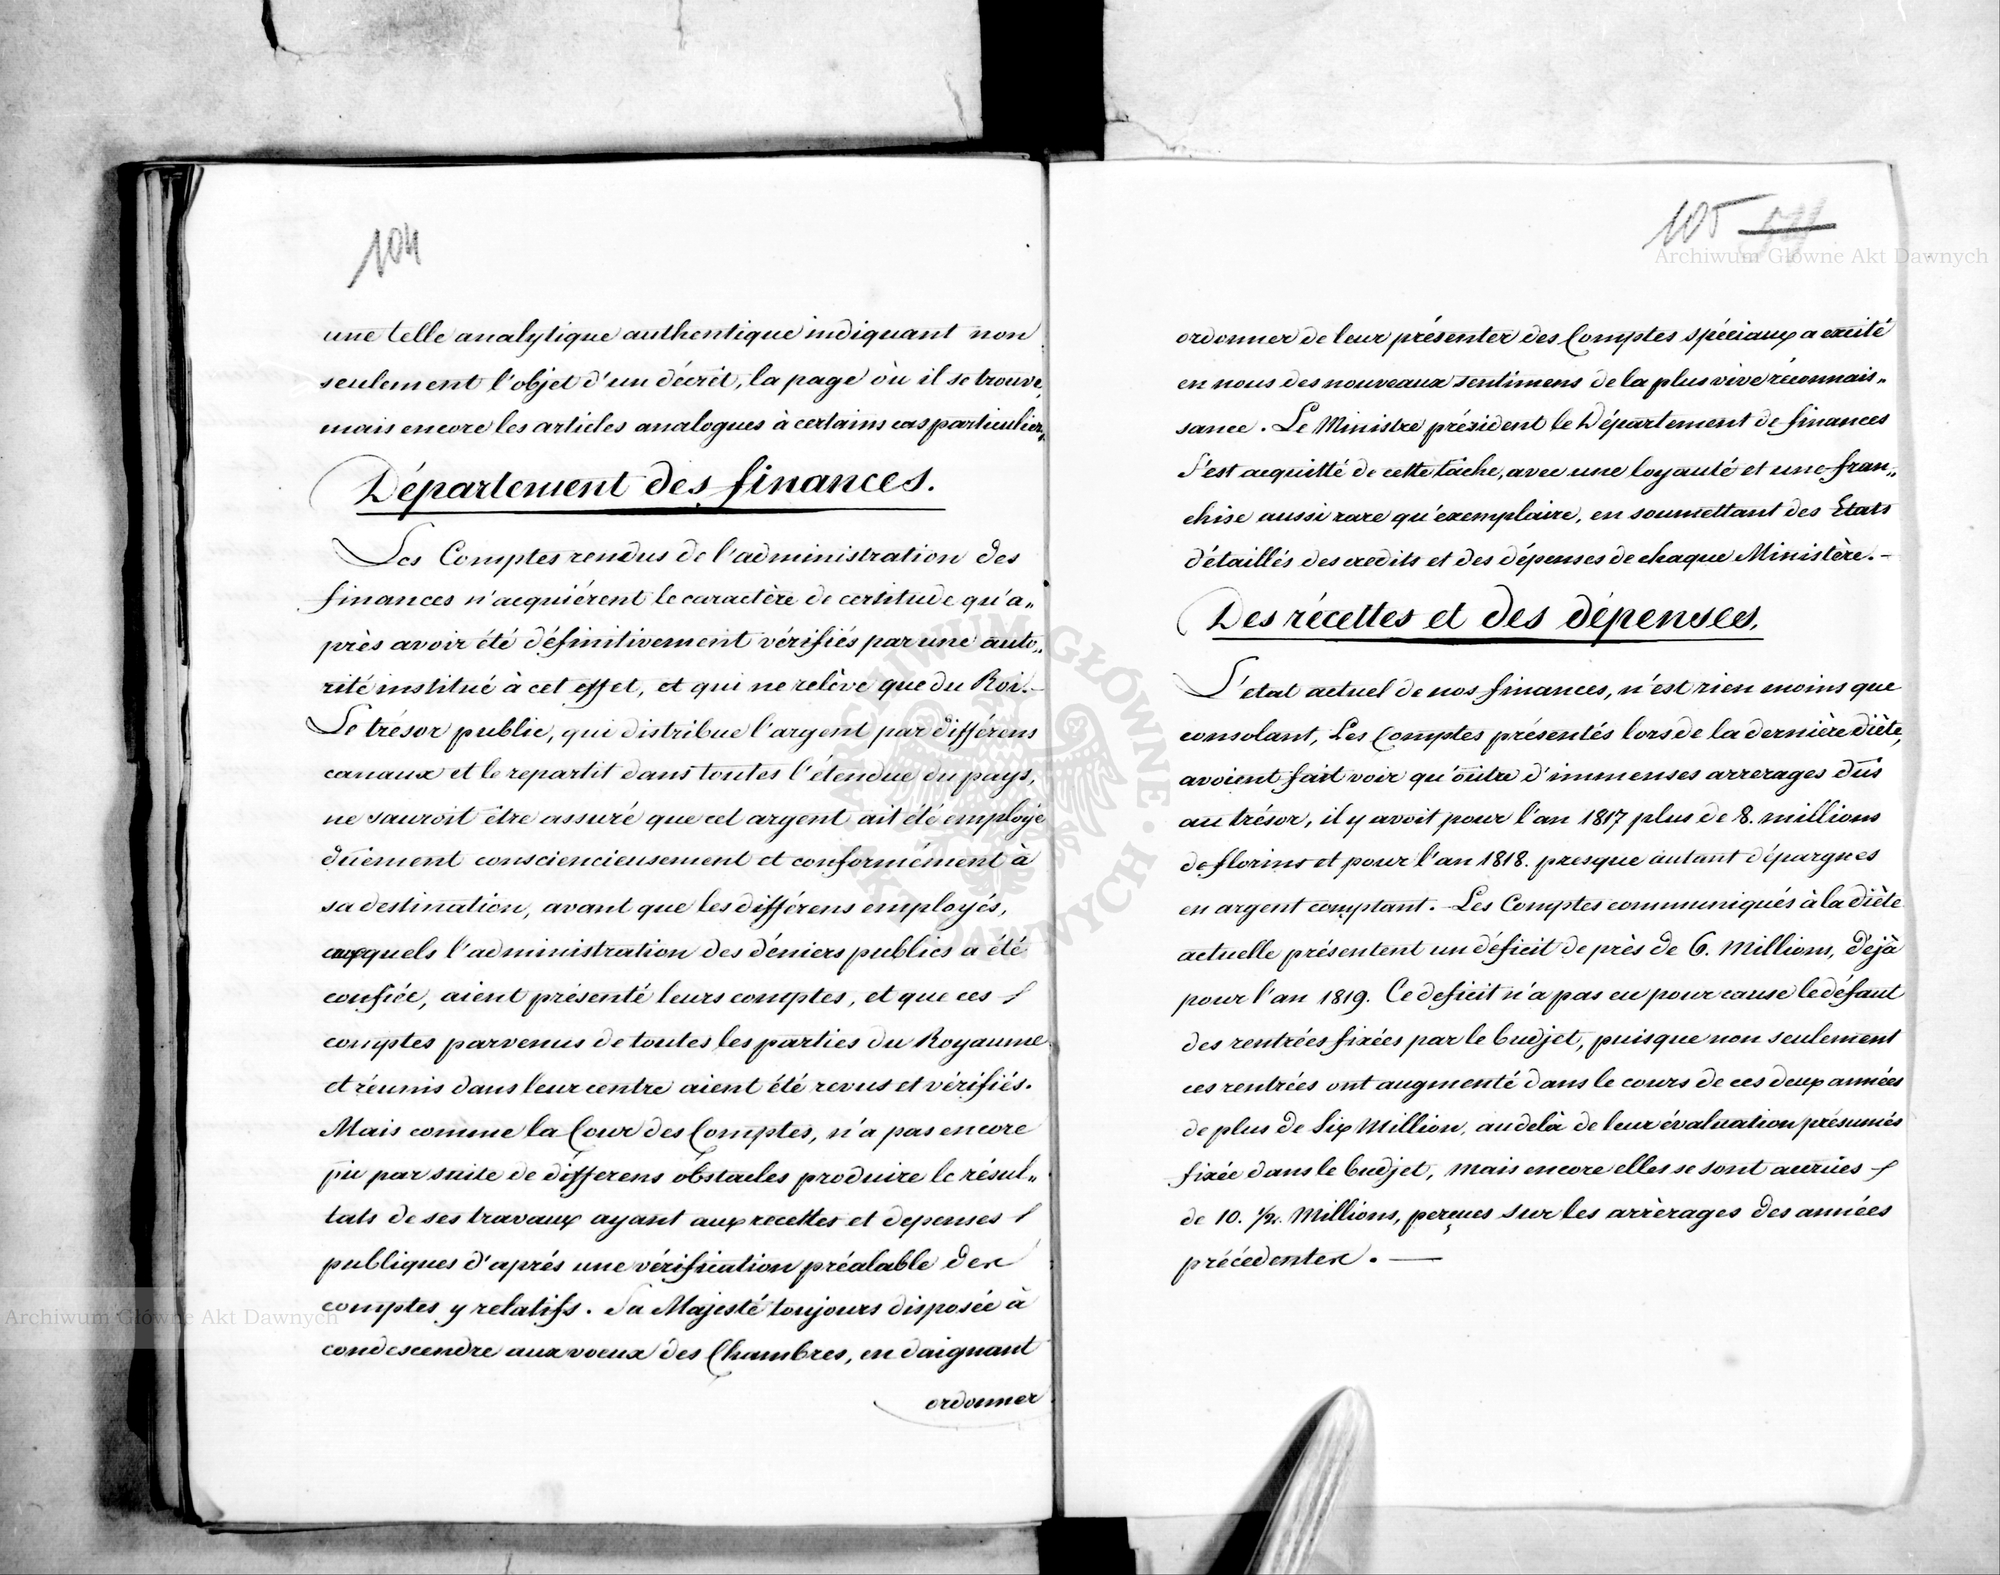 104
une telle analytique authentique indiquant non
seulement l'objet d'un décrèt, la page où il se trouve,
mais encore les articles analogues à certains cas particuliers.
Département des finances.
Les Comptes rendus de l'administration des
finances n'acquiérent le caractère de certitude qu'a„
près avoir été définitivement vérifiés par une auto„
rité institué à cet effet, et qui ne relève que du Roi.—
Le trésor public, qui distribue l'argent par différens
canaux et le repartit dans toutes l'étendue du pays,
ne sauroit être assuré que cet argent ait été employé
duement consciencieusement et conformément à
sa destination, avant que les différens employés,
auxquels l'administration des déniers publics a été
confiée, aient présenté leurs comptes, et que ces
comptes parvenus de toutes les parties du Royaume
et réunis dans leur centre aient été revus et vérifiés.
Mais comme la Cour des Comptes, n'a pas encore
pu par suite de differens obstacles produire le résul„
tats de ses travaux ayant aux recettes et depenses
publiques d'aprés une vérification préalable des
comptes y relatifs. Sa Majesté toujours disposée à
condescendre aux voeux des Chambres, en daignant
ordonner
105
ordonner de leur présenter des Comptes spéciaux a excité
en nous des nouveaux sentimens de la plus vive réconnais„
sance. Le Ministre président le Département de finances
S'est acquitté de cette tâche, avec une loyauté et une fran„
chise aussi rare qu'exemplaire, en soumettant des Etats
détaillés des credits et des dépenses de chaque Ministère.—
Des récettes et des dépenses.
L'etat actuel de nos finances, n'est rien moins que
consolant, Les Comptes présentés lors de la dernière diète,
avoient fait voir qu'outre d'immenses arrerages dûs
au trésor, il y avoit pour l'an 1817 plus de 8. millions
de florins et pour l'an 1818. presque autant d'épargnes
en argent comptant.— Les Comptes communiqués à la diète
actuelle présentent un déficit de près de 6. Millions, déjà
pour l'an 1819. Ce deficit n'a pas eu pour cause le défaut
des rentrées fixées par le budjet, puisque non seulement
ces rentrées ont augmenté dans le cours de ces deux années
de plus de Six Million, au delà de leur évaluation présumés
fixée dans le budjet, mais encore elles se sont accrües
de 10. ½. Millions, perçues sur les arrèrages des années
précédentes.—
Archiwum Główne Akt Dawnych
Archiwum Główne Akt Dawnych
ARCHIWUM GŁÓWNE AKT DAWNYCH